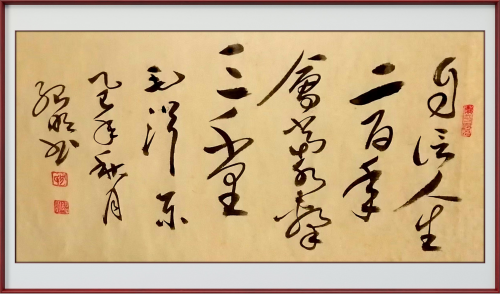 自信人生
二百年
會當擊水
三千里
毛澤東
乙巳年秋月